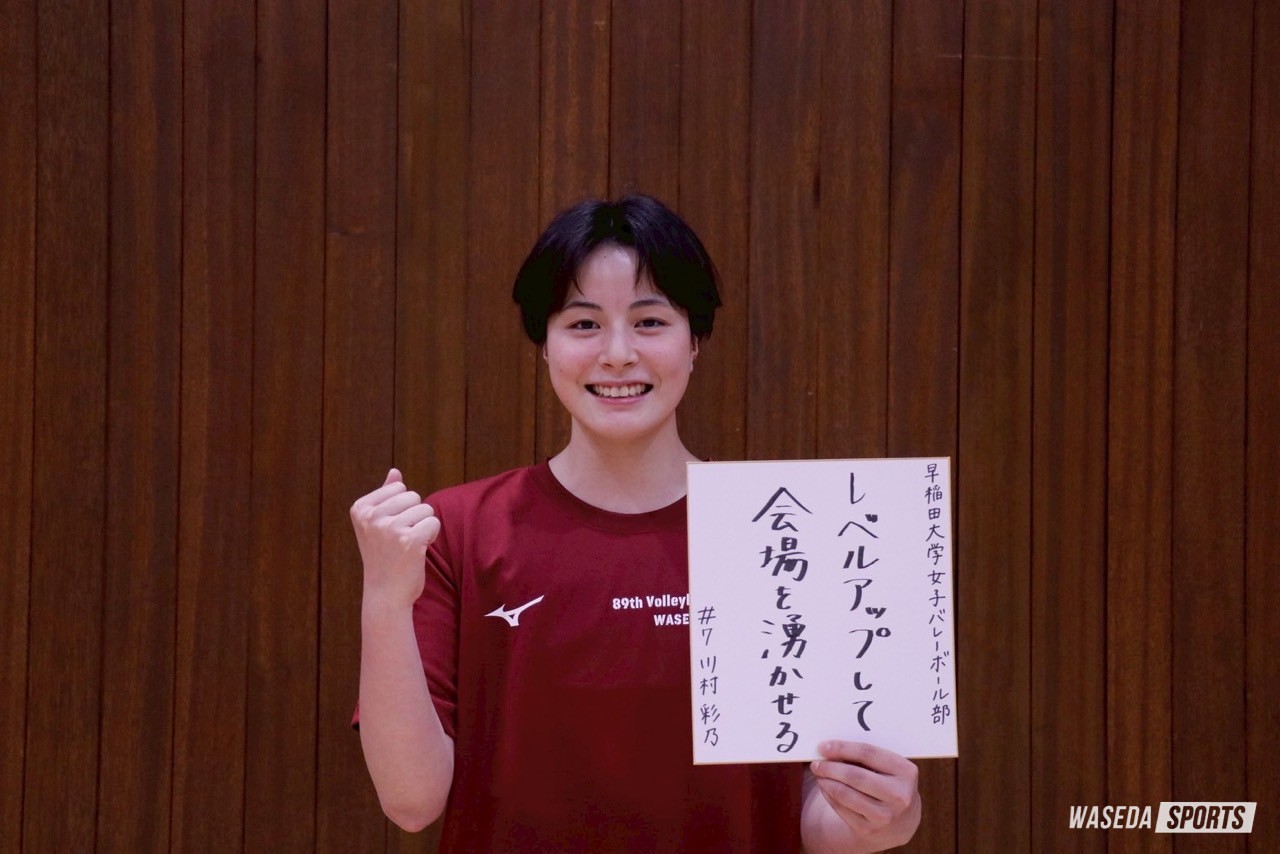 早稲田大学女子バレーボール部
レベルアップして
会場を湧かせる
#7 川村 彩乃
89th Volleyl
WASE
WASEDA SPORTS